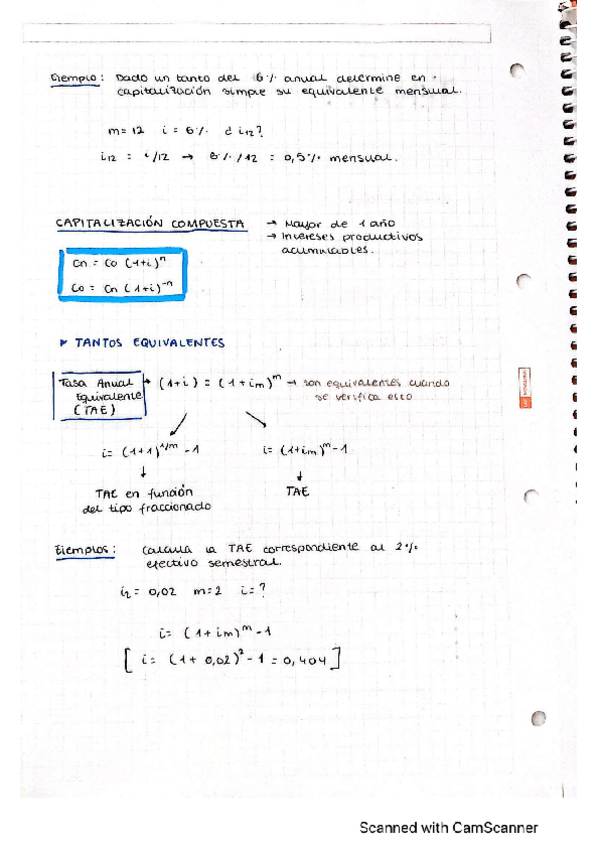 Ejemplo: Dado un tanto del 6% anual determine en
capitalización simple su equivalente mensual.
m = 12 i = 6% ¿i12?
i12 = i/12 → 6%/12 = 0,5% mensual.
CAPITALIZACIÓN COMPUESTA → Mayor de 1 año
→ Intereses productivos
acumulables.
Cn = Co (1+i)^n
Co = Cn (1+i)^-n
▸ TANTOS EQUIVALENTES
Tasa Anual Equivalente (TAE) → (1+i) = (1+im)^m → son equivalentes cuando
se verifica esto
i = (1+1)^1/m - 1 i = (1+im)^m - 1
↓ ↓
TAE en función TAE
del tipo fraccionado
Ejemplos: Calcula la TAE correspondiente al 2%
efectivo semestral.
i2 = 0,02 m = 2 i = ?
i = (1+im)^m - 1
[ i = (1+0,02)^2 - 1 = 0,404 ]
Scanned with CamScanner